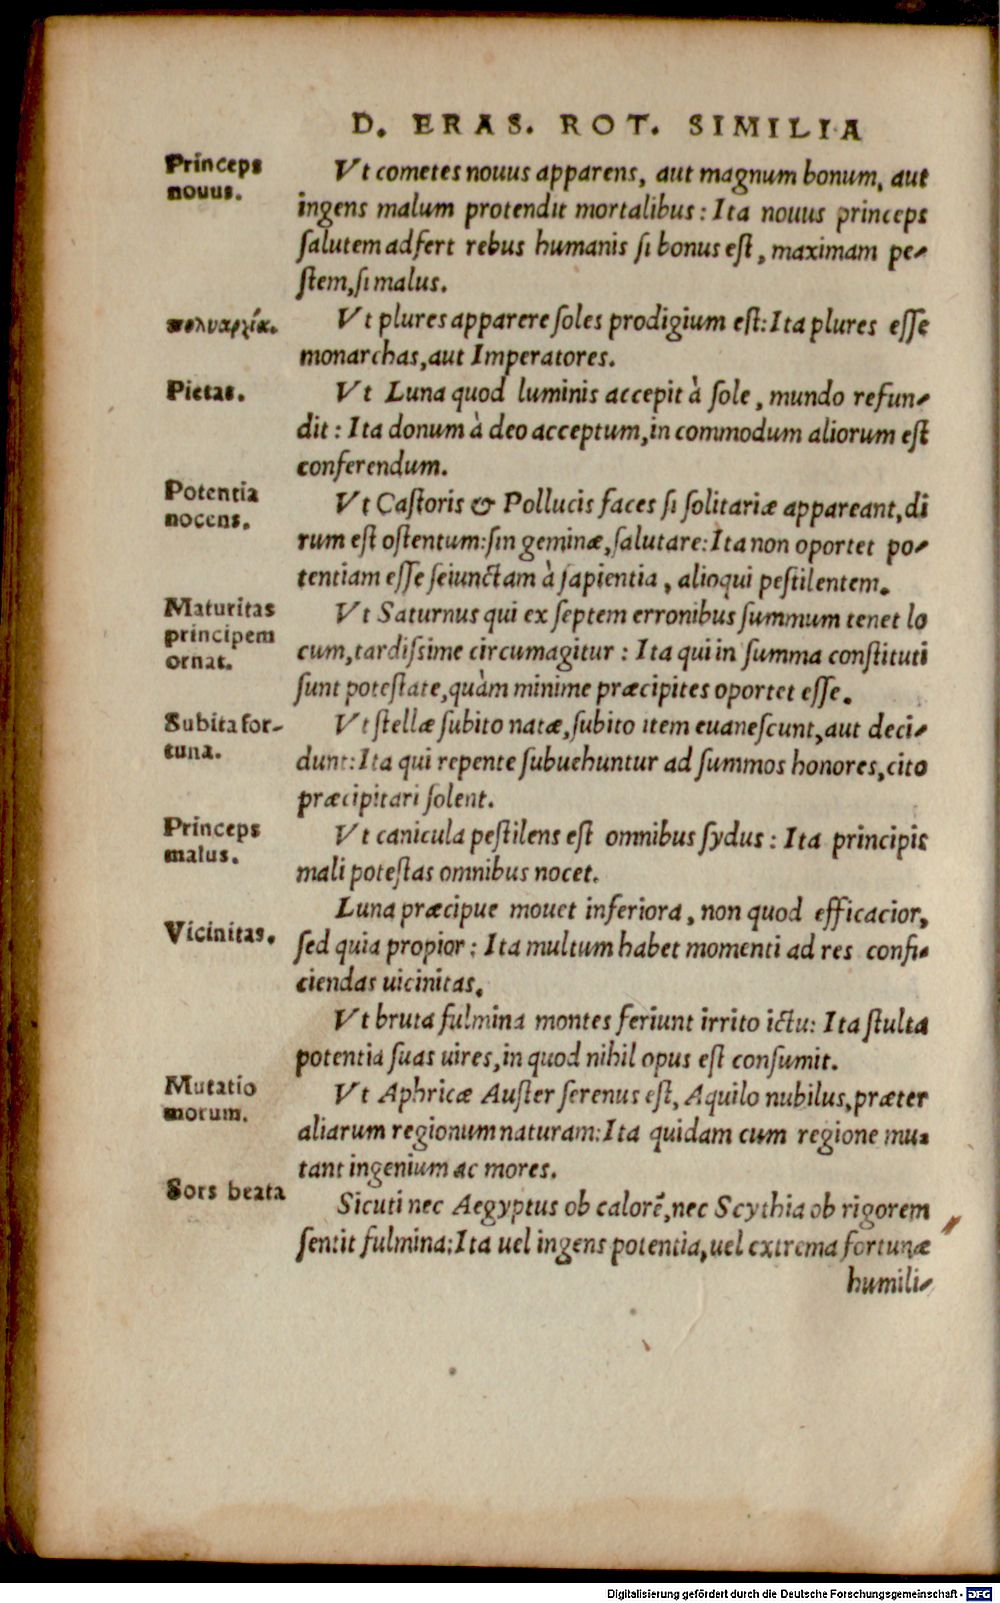 D. ERAS. ROT. SIMILIA
Princeps
nouus.
Vt cometes nouus apparens, aut magnum bonum, aut
ingens malum protendit mortalibus: Ita nouus princeps
salutem adfert rebus humanis si bonus est, maximam pe-
stem, si malus.
πολυαρχία.
Vt plures apparere soles prodigium est: Ita plures esse
monarchas, aut Imperatores.
Pietas.
Vt Luna quod luminis accepit à sole, mundo refun-
dit: Ita donum à deo acceptum, in commodum aliorum est
conferendum.
Potentia
nocens.
Vt Castoris & Pollucis faces si solitariæ appareant, di
rum est ostentum: sin geminæ, salutare: Ita non oportet po-
tentiam esse seiunctam à sapientia, alioqui pestilentem.
Maturitas
principem
ornat.
Vt Saturnus qui ex septem erronibus summum tenet lo
cum, tardissime circumagitur: Ita qui in summa constituti
sunt potestate, quàm minime præcipites oportet esse.
Subita for-
tuna.
Vt stellæ subito natæ, subito item euanescunt, aut deci-
dunt: Ita qui repente subuehuntur ad summos honores, cito
præcipitari solent.
Princeps
malus.
Vt canicula pestilens est omnibus sydus: Ita principis
mali potestas omnibus nocet.
Vicinitas.
Luna præcipue mouet inferiora, non quod efficacior,
sed quia propior: Ita multum habet momenti ad res confi-
ciendas uicinitas.
Vt bruta fulmina montes feriunt irrito ictu: Ita stulta
potentia suas uires, in quod nihil opus est consumit.
Mutatio
morum.
Vt Aphricæ Auster serenus est, Aquilo nubilus, præter
aliarum regionum naturam: Ita quidam cum regione mu-
tant ingenium ac mores.
Sors beata
Sicuti nec Aegyptus ob calorē, nec Scythia ob rigorem
sentit fulmina: Ita uel ingens potentia, uel extrema fortunæ
humili-
Digitalisierung gefördert durch die Deutsche Forschungsgemeinschaft - DFG